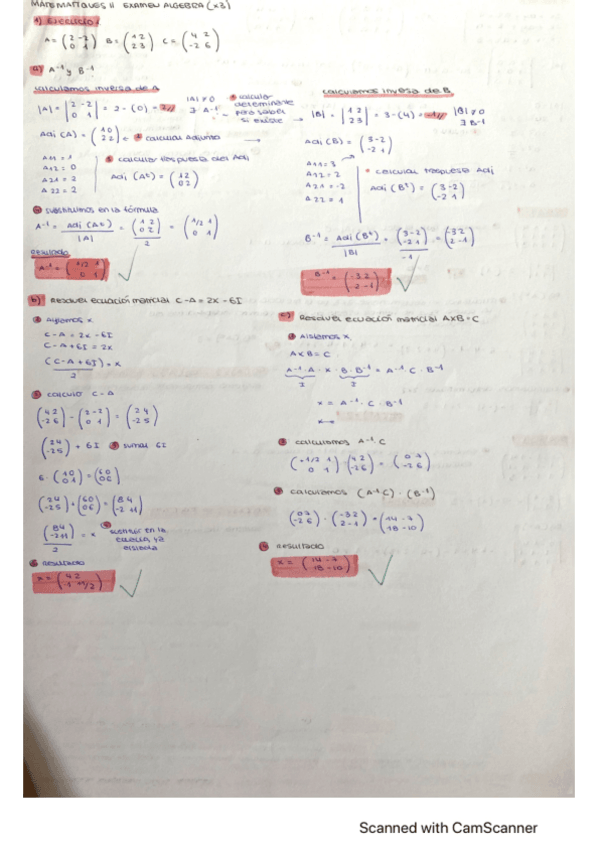 MATEMÁTIQUES II EXAMEN ALGEBRA (x3)
1) Ejercicio 1
A = (2 -2 / 0 1) B = (1 2 / 2 3) C = (4 2 / -2 6)
a) A⁻¹ y B⁻¹
calculamos inversa de A
|A| = |2 -2 / 0 1| = 2 - (0) = 2 // |A| ≠ 0 ∃ A⁻¹
calcular determinante para saber si existe
Adj (A) = (1 0 / 2 2) calcular Adjunto
A11 = 1
A12 = 0
A21 = 2
A22 = 2
calcular traspuesta del Adj
Adj (Aᵗ) = (1 2 / 0 2)
sustituimos en la fórmula
A⁻¹ = Adj (Aᵗ) / |A| = (1 2 / 0 2) / 2 = (1/2 1 / 0 1)
Resultado
A⁻¹ = (1/2 1 / 0 1)
calculamos inversa de B
|B| = |1 2 / 2 3| = 3 - (4) = -1 // |B| ≠ 0 ∃ B⁻¹
Adj (B) = (3 -2 / -2 1)
A11 = 3
A12 = -2
A21 = -2
A22 = 1
calcular traspuesta Adj
Adj (Bᵗ) = (3 -2 / -2 1)
B⁻¹ = Adj (Bᵗ) / |B| = (3 -2 / -2 1) / -1 = (-3 2 / 2 -1)
B⁻¹ = (-3 2 / 2 -1)
b) Resuel ecuación matricial C-A = 2X - 6I
Aislamos x
C - A = 2x - 6I
C - A + 6I = 2x
(C - A + 6I) / 2 = x
calculo C - A
(4 2 / -2 6) - (2 -2 / 0 1) = (2 4 / -2 5)
(2 4 / -2 5) + 6I sumar 6I
6 · (1 0 / 0 1) = (6 0 / 0 6)
(2 4 / -2 5) + (6 0 / 0 6) = (8 4 / -2 11)
(8 4 / -2 11) / 2 = x
Resultado
x = (4 2 / -1 11/2)
c) Resuelv ecuación matricial AXB = C
Aislamos x
AXB = C
A⁻¹ · A · X · B · B⁻¹ = A⁻¹ · C · B⁻¹
x = A⁻¹ · C · B⁻¹
calculamos A⁻¹ · C
(1/2 1 / 0 1) · (4 2 / -2 6) = (0 7 / -2 6)
calculamos (A⁻¹C) · (B⁻¹)
(0 7 / -2 6) · (-3 2 / 2 -1) = (14 -7 / 18 -10)
Resultado
x = (14 -7 / 18 -10)
Scanned with CamScanner